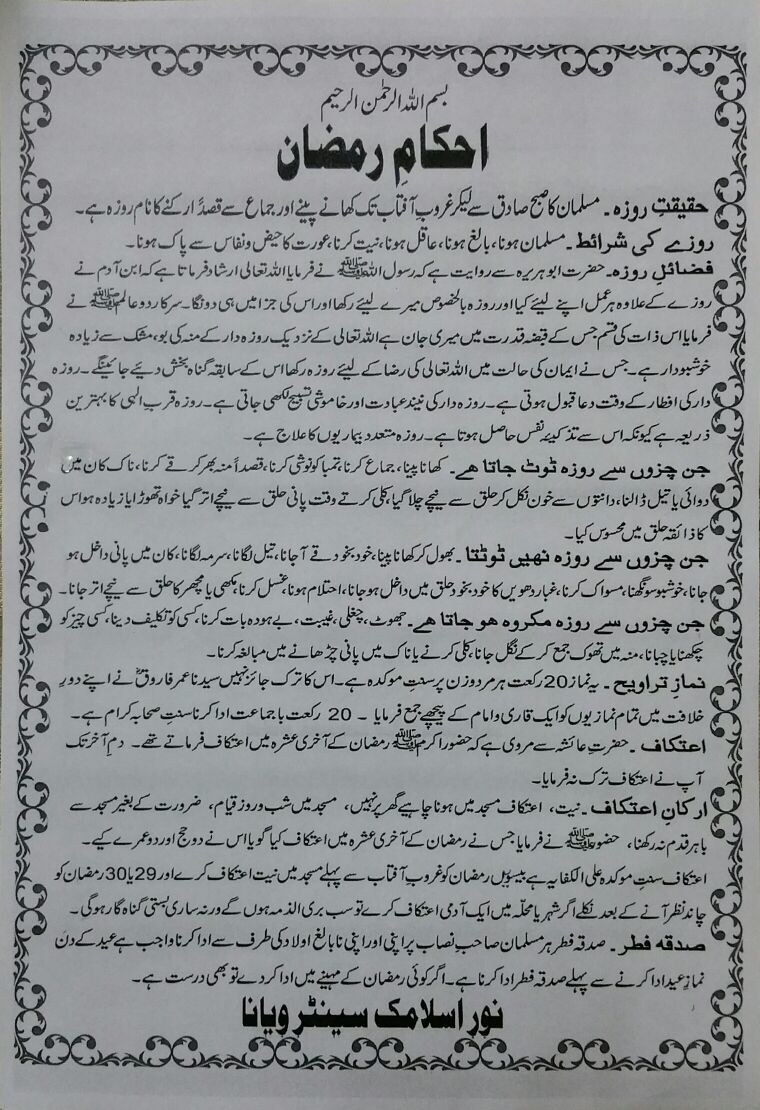 بسم اللہ الرحمٰن الرحیم
احکامِ رمضان
حقیقتِ روزہ۔ مسلمان کا صبح صادق سے لیکر غروب آفتاب تک کھانے پینے اور جماع سے قصداً رکنے کا نام روزہ ہے۔
روزے کی شرائط۔ مسلمان ہونا، بالغ ہونا، عاقل ہونا، نیت کرنا، عورت کا حیض و نفاس سے پاک ہونا۔
فضائلِ روزہ۔ حضرت ابو ہریرہ سے روایت ہے کہ رسول اللہ ﷺ نے فرمایا اللہ تعالی ارشاد فرماتا ہے کہ ابن آدم نے
روزے کے علاوہ ہر عمل اپنے لیئے کیا اور روزہ بالخصوص میرے لیئے رکھا اور اس کی جزا میں ہی دونگا۔ سرکار دو عالم ﷺ نے
فرمایا اس ذات کی قسم جس کے قبضہ قدرت میں میری جان ہے اللہ تعالی کے نزدیک روزہ دار کے منہ کی بو، مشک سے زیادہ
خوشبودار ہے۔ جس نے ایمان کی حالت میں اللہ تعالی کی رضا کے لیئے روزہ رکھا اس کے سابقہ گناہ بخش دیئے جائینگے۔ روزہ
دار کی افطار کے وقت دعا قبول ہوتی ہے۔ روزہ دار کی نیند عبادت اور خاموشی تسبیح لکھی جاتی ہے۔ روزہ قربِ الہی کا بہترین
ذریعہ ہے کیونکہ اس سے تذکیہ نفس حاصل ہوتا ہے۔ روزہ متعدد بیماریوں کا علاج ہے۔
جن چزوں سے روزہ ٹوٹ جاتا ھے۔ کھانا پینا، جماع کرنا، تمباکو نوشی کرنا، قصداً منہ بھر کرقے کرنا، ناک کان میں
دوائی یا تیل ڈالنا، دانتوں سے خون نکل کر حلق سے نیچے چلا گیا، کلی کرتے وقت پانی حلق سے نیچے اتر گیا خواہ تھوڑا یا زیادہ ہو اس
کا ذائقہ حلق میں محسوس کیا۔
جن چزوں سے روزہ نھیں ٹوٹتا۔ بھول کر کھانا پینا، خود بخود قے آجانا، تیل لگانا، سرمہ لگانا، کان میں پانی داخل ہو
جانا، خوشبو سونگھنا، مسواک کرنا، غبار دھویں کا خود بخود حلق میں داخل ہوجانا، احتلام ہونا، غسل کرنا، مکھی یا مچھر کا حلق سے نیچے اتر جانا۔
جن چزوں سے روزہ مکروہ ھو جاتا ھے۔ جھوٹ، چغلی، غیبت، بے ہودہ بات کرنا، کسی کو تکلیف دینا، کسی چیز کو
چکھنا یا چبانا، منہ میں تھوک جمع کر کے نگل جانا، کلی کرنے یا ناک میں پانی چڑھانے میں مبالغہ کرنا۔
نمازِ تراویح۔ یہ نماز 20 رکعت ہر مرد و زن پر سنتِ موکدہ ہے۔ اس کا ترک جائز نہیں سیدنا عمر فاروقؓ نے اپنے دورِ
خلافت میں تمام نمازیوں کو ایک قاری و امام کے پیچھے جمع فرمایا ۔ 20 رکعت با جماعت ادا کرنا سنتِ صحابہ کرام ہے۔
اعتکاف۔ حضرتِ عائشہ سے مروی ہے کہ حضور اکرم ﷺ رمضان کے آخری عشرہ میں اعتکاف فرماتے تھے۔ دمِ آخر تک
آپ نے اعتکاف ترک نہ فرمایا۔
ارکانِ اعتکاف۔ نیت، اعتکاف مسجد میں ہونا چاہیے گھر پر نہیں، مسجد میں شب و روز قیام، ضرورت کے بغیر مسجد سے
باہر قدم نہ رکھنا، حضور ﷺ نے فرمایا جس نے رمضان کے آخری عشرہ میں اعتکاف کیا گویا اس نے دو حج اور دو عمرے کیے۔
اعتکاف سنتِ موکدہ علی الکفایہ ہے بیسویں رمضان کو غروبِ آفتاب سے پہلے مسجد میں نیت اعتکاف کرے اور 29 یا 30 رمضان کو
چاند نظر آنے کے بعد نکلے اگر شہر یا محلّہ میں ایک آدمی اعتکاف کرے تو سب بری الذمہ ہوں گے ورنہ ساری بستی گناہ گار ہوگی۔
صدقہ فطر۔ صدقہ فطر ہر مسلمان صاحبِ نصاب پر اپنی اور اپنی نا بالغ اولاد کی طرف سے ادا کرنا واجب ہے عید کے دن
نمازِ عید ادا کرنے سے پہلے صدقہ فطر ادا کرنا ہے۔ اگر کوئی رمضان کے مہینے میں ادا کردے تو بھی درست ہے۔
نور اسلامک سینٹر ویانا